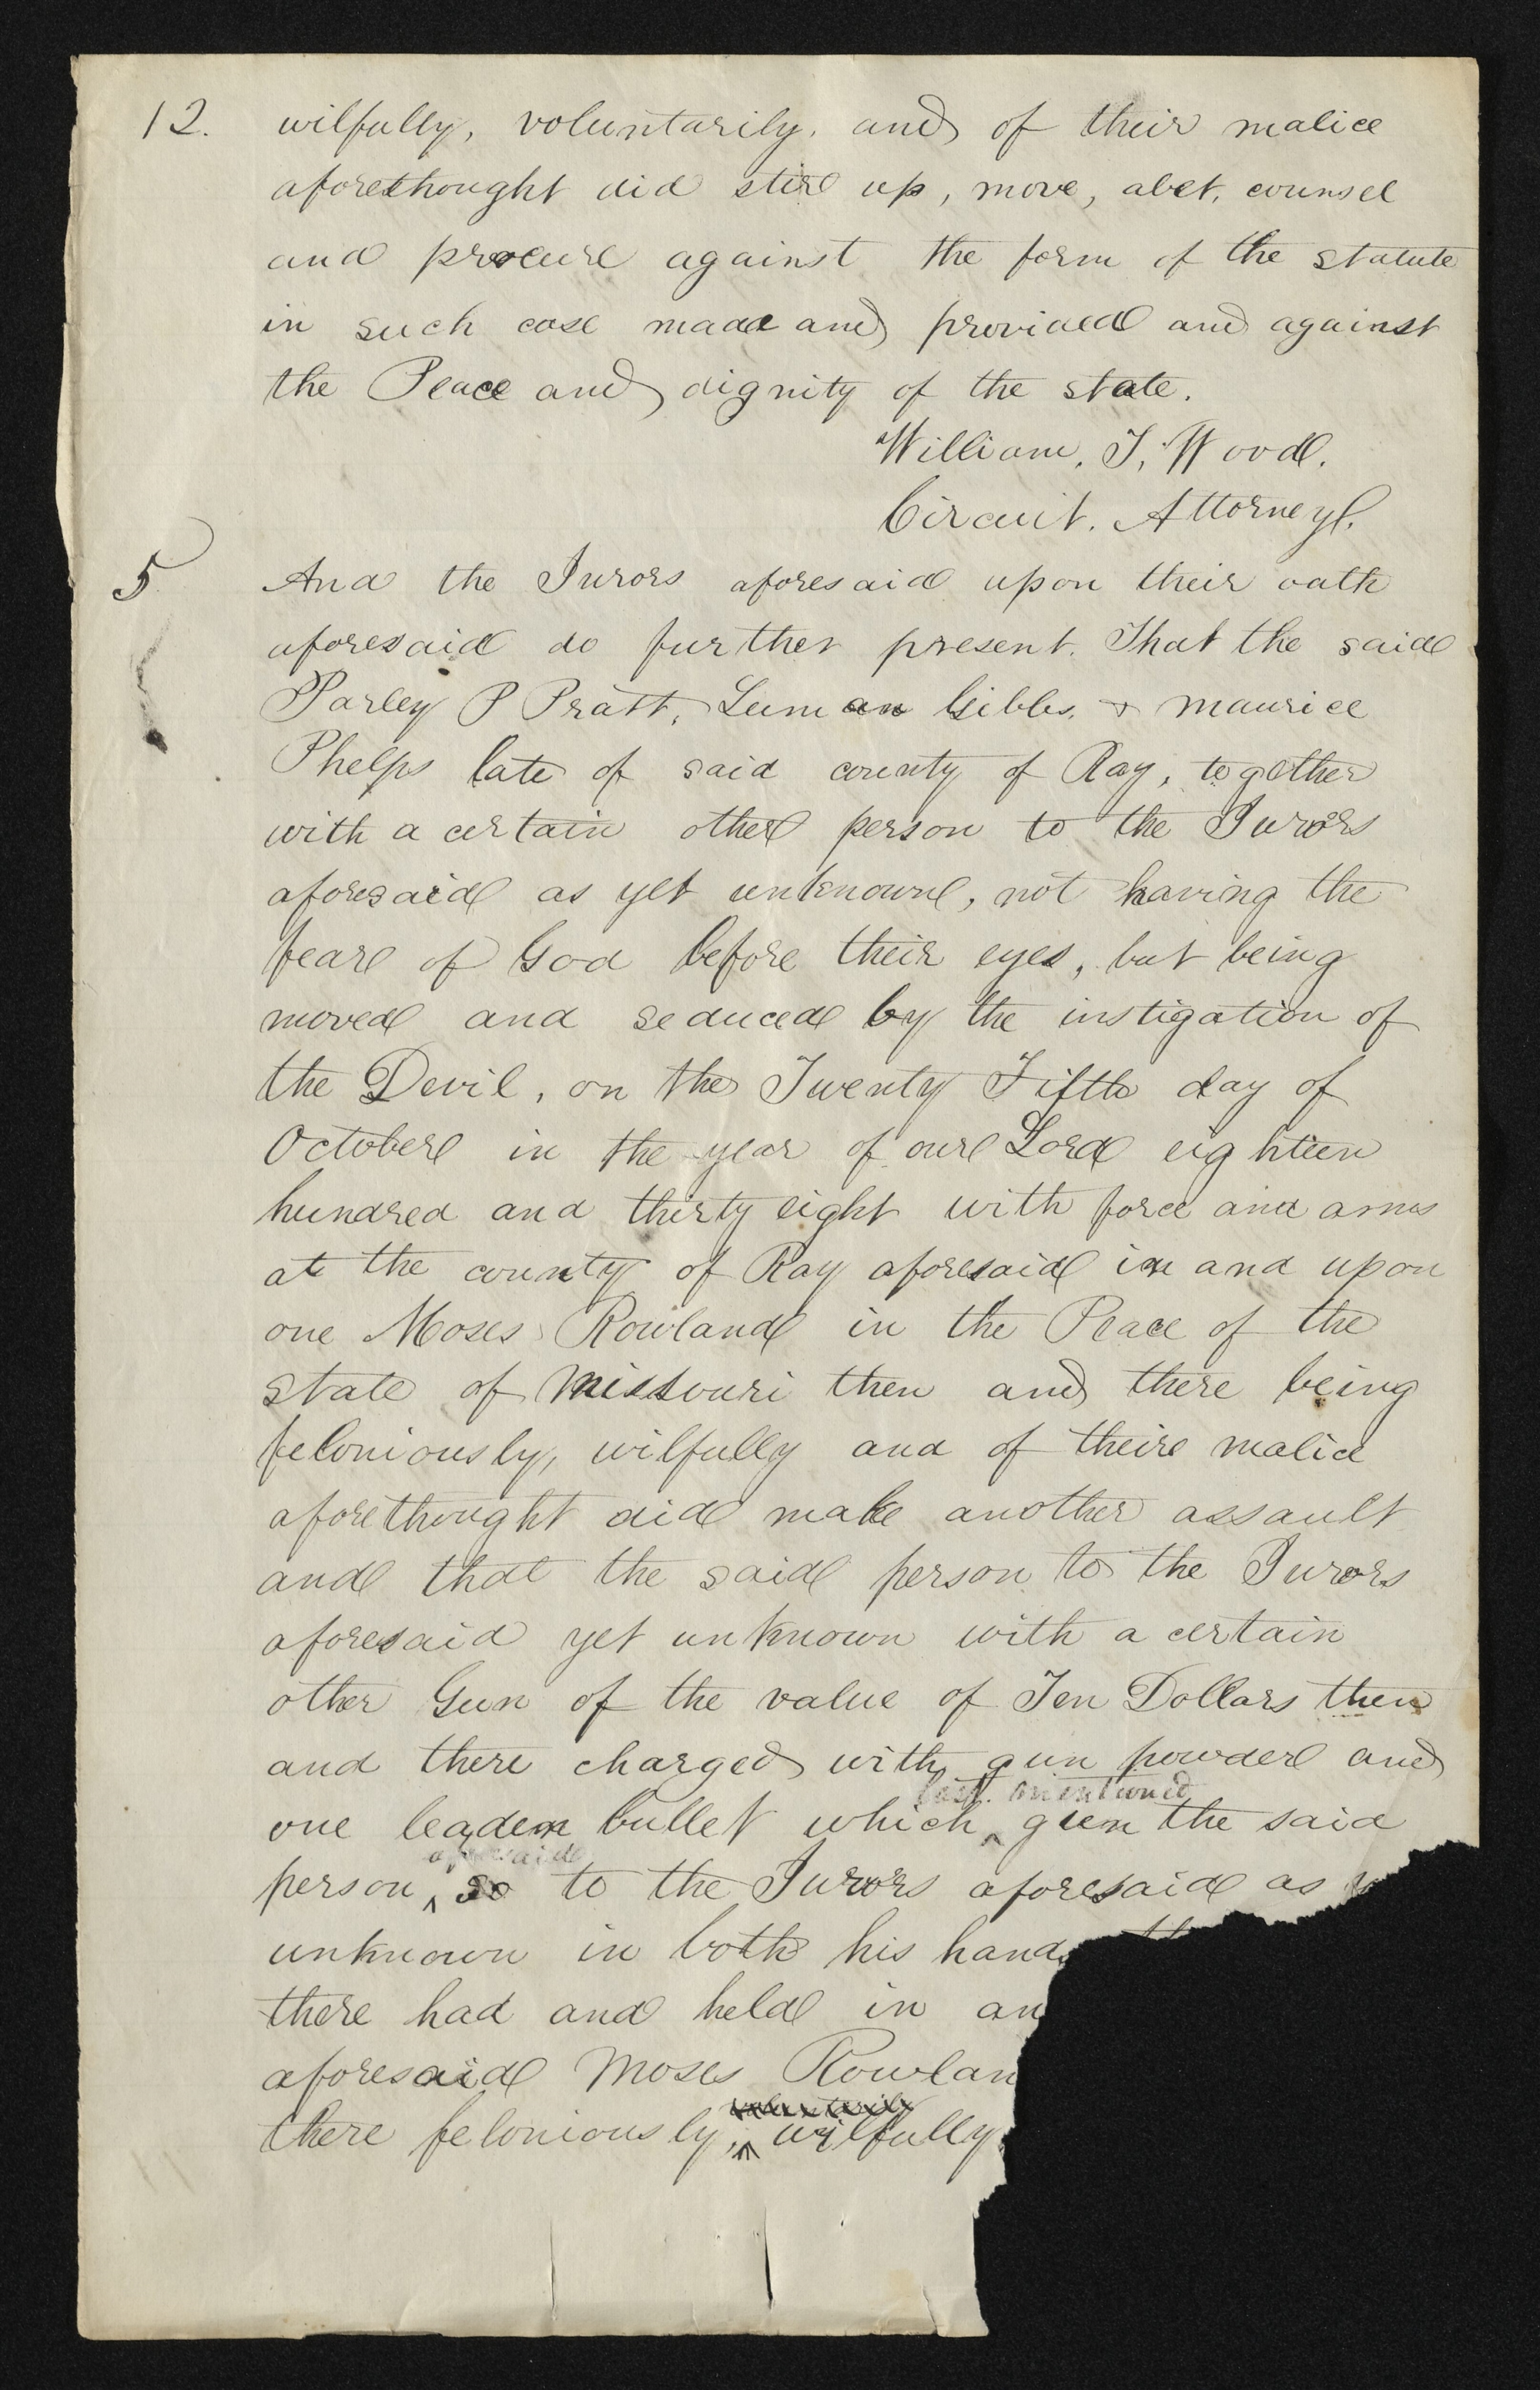 12. wilfully, voluntarily, and of their malice
aforethought did stir up, move, abet, counsel
and procure against the form of the statute
in such case made and provided and against
the Peace and dignity of the state.
William. T. Wood.
Circuit. Attorney.
5 And the Jurors aforesaid upon their oath
aforesaid do further present. That the said
Parley P Pratt, Luman Gibbs, & Maurice
Phelps late of said county of Ray, together
with a certain other person to the Jurors
aforesaid as yet unknown, not having the
fear of God before their eyes, but being
moved and seduced by the instigation of
the Devil, on the Twenty Fifth day of
October in the year of our Lord eighteen
hundred and thirty eight with force and arms
at the county of Ray aforesaid in and upon
one Moses Rowland in the Peace of the
state of Missouri then and there being
feloniously, wilfully and of their malice
aforethought did make another assault
and that the said person to the Jurors
aforesaid yet unknown with a certain
other Gun of the value of Ten Dollars then
and there charged with gun powder and
last. mentioned
one leaden bullet which ^ gun the said
aforesaid
person ^ so to the Jurors aforesaid as
unknown in both his hands
there had and held in an
aforesaid Moses Rowlan
voluntarily
there feloniously, ^ wilfully